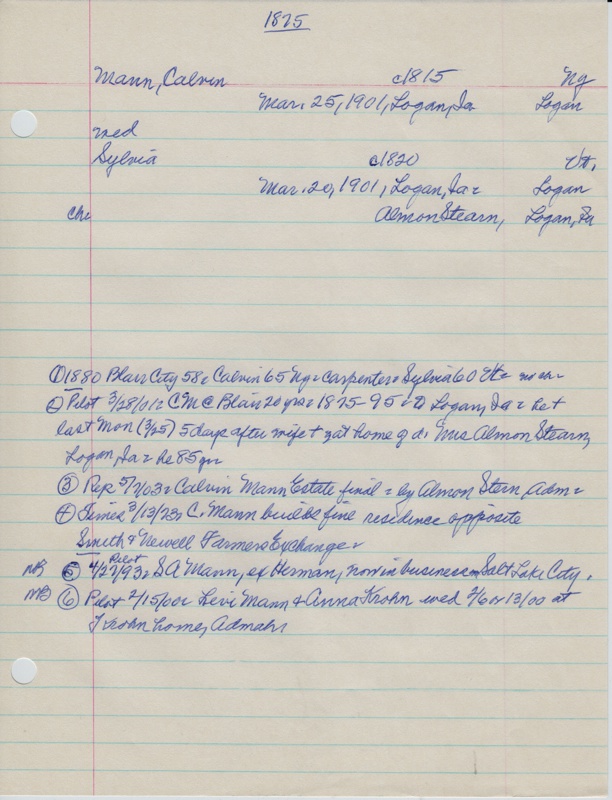 1875
Mann, Calvin c1815 Ny
Mar. 25, 1901, Logan, Ia Logan
wed
Sylvia c1820 Vt.
Mar. 20, 1901, Logan, Ia = Logan
Ch: Almon Stearn, Logan, Ia
① 1880 Blair City 58 = Calvin 65 Ny = Carpenter = Sylvia 60 Vt = no ch =
② Pilot 3/28/01 = C M C Blair 20 yrs = 1875-95 = Logan, Ia = he +
last Mon (3/25) 5 days after wife + at home of d: Mrs Almon Stearn,
Logan, Ia = he 85 yr
③ Rep 5/7/03 = Calvin Mann Estate final = by Almon Stern, Adm =
④ Times 3/13/73 = C. Mann builds fine residence opposite
Smith & Newell Farmers Exchange =
NB ⑤ Pilot 4/27/93 = SA Mann, of Herman, now in business in Salt Lake City.
NB ⑥ Pilot 2/15/00 = Levi Mann & Anna Krohn wed 2/6 or 13/00 at
Krohn home, Admah =